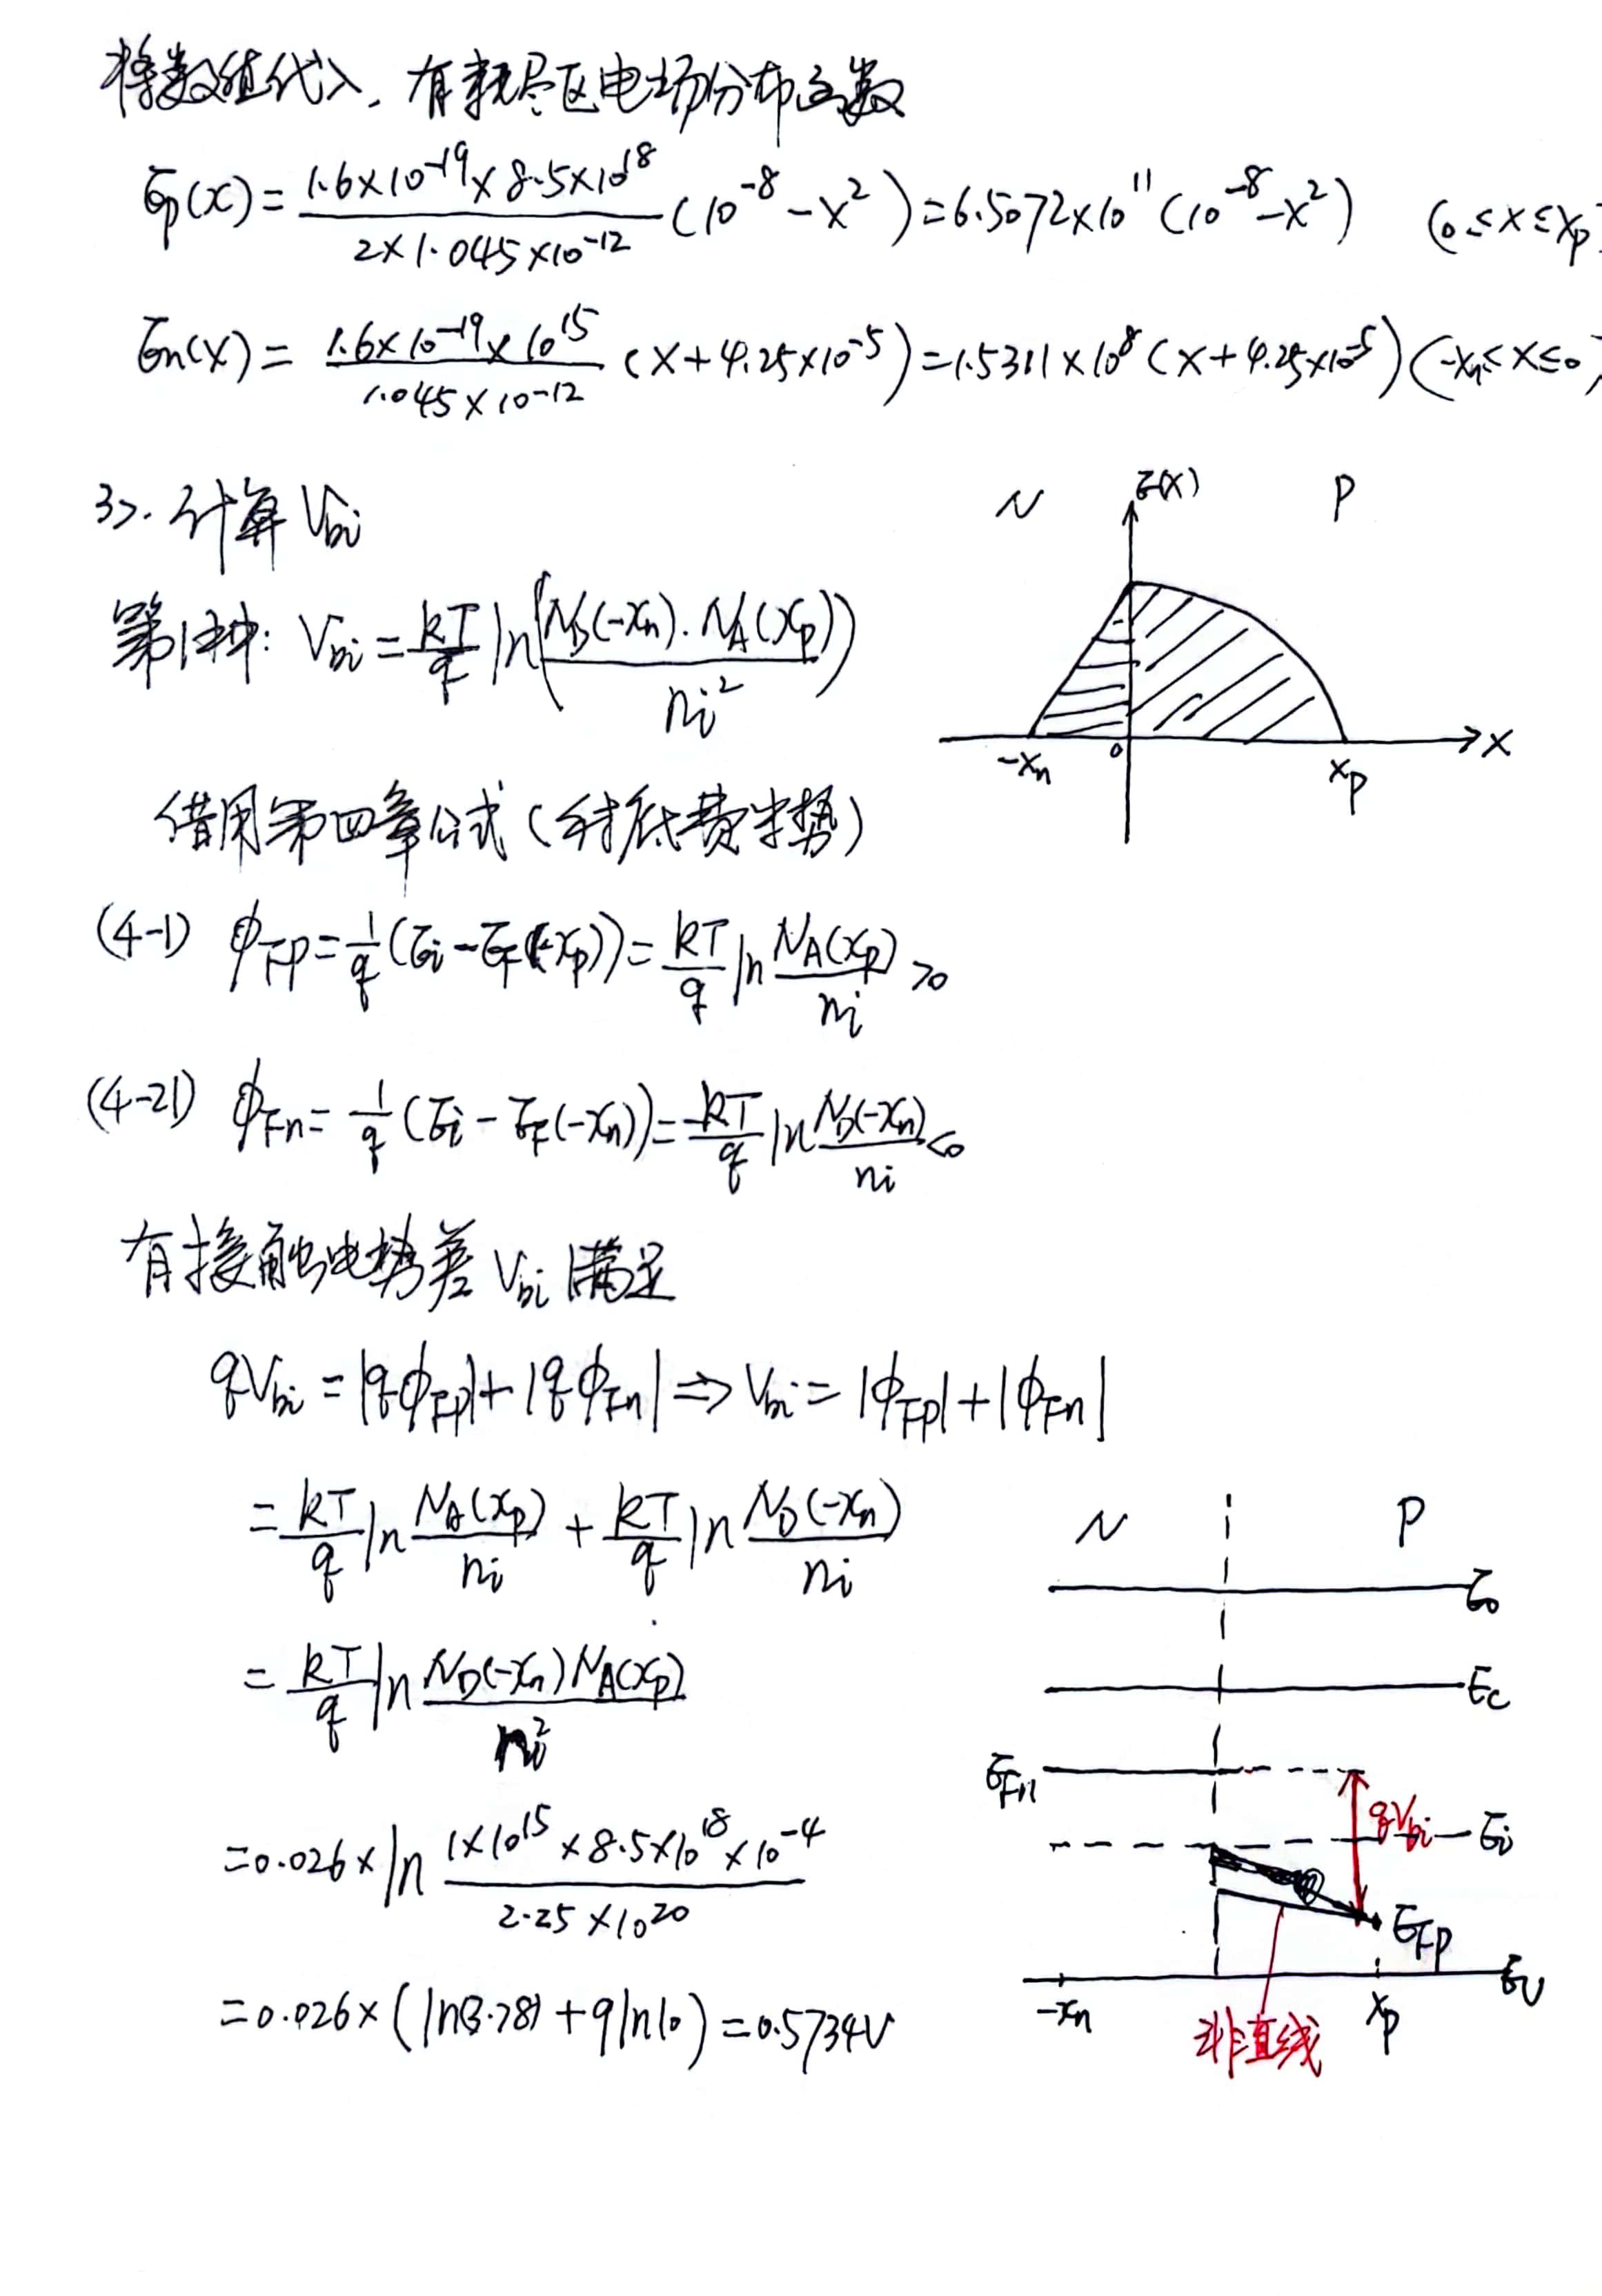 将数值代入，有耗尽区电场分布函数
Ep(x)=1.6×10^-19×8.5×10^18/(2×1.045×10^-12) (10^-8-x²)=6.5072×10^11(10^-8-x²) (0≤x≤xp)
En(x)=1.6×10^-19×10^15/(1.045×10^-12) (x+4.25×10^-5)=1.5311×10^8(x+4.25×10^-5)(-xn≤x≤0)
3>. 计算Vbi
第1种: Vbi=kT/q ln(ND(-xn)·NA(xp)/ni²)
N E(x) P
-xn 0 xp x
借用第四章公式(衬底费米势)
(4-1) φFP=1/q(Ei-EF(xp))=kT/q ln NA(xp)/ni >0
(4-21) φFn=1/q(Ei-EF(-xn))=-kT/q ln ND(-xn)/ni <0
有接触电势差Vbi满足
qVbi=|qφFP|+|qφFn|⇒Vbi=|φFP|+|φFn|
=kT/q ln NA(xp)/ni + kT/q ln ND(-xn)/ni
=kT/q ln ND(-xn)NA(xp)/ni²
=0.026×ln 1×10^15×8.5×10^18×10^-4/(2.25×10^20)
=0.026×(ln(3.78)+9ln10)=0.5734V
N P
E0
Ec
EFn
qVbi Ei
EFP
Ev
-xn xp
非直线